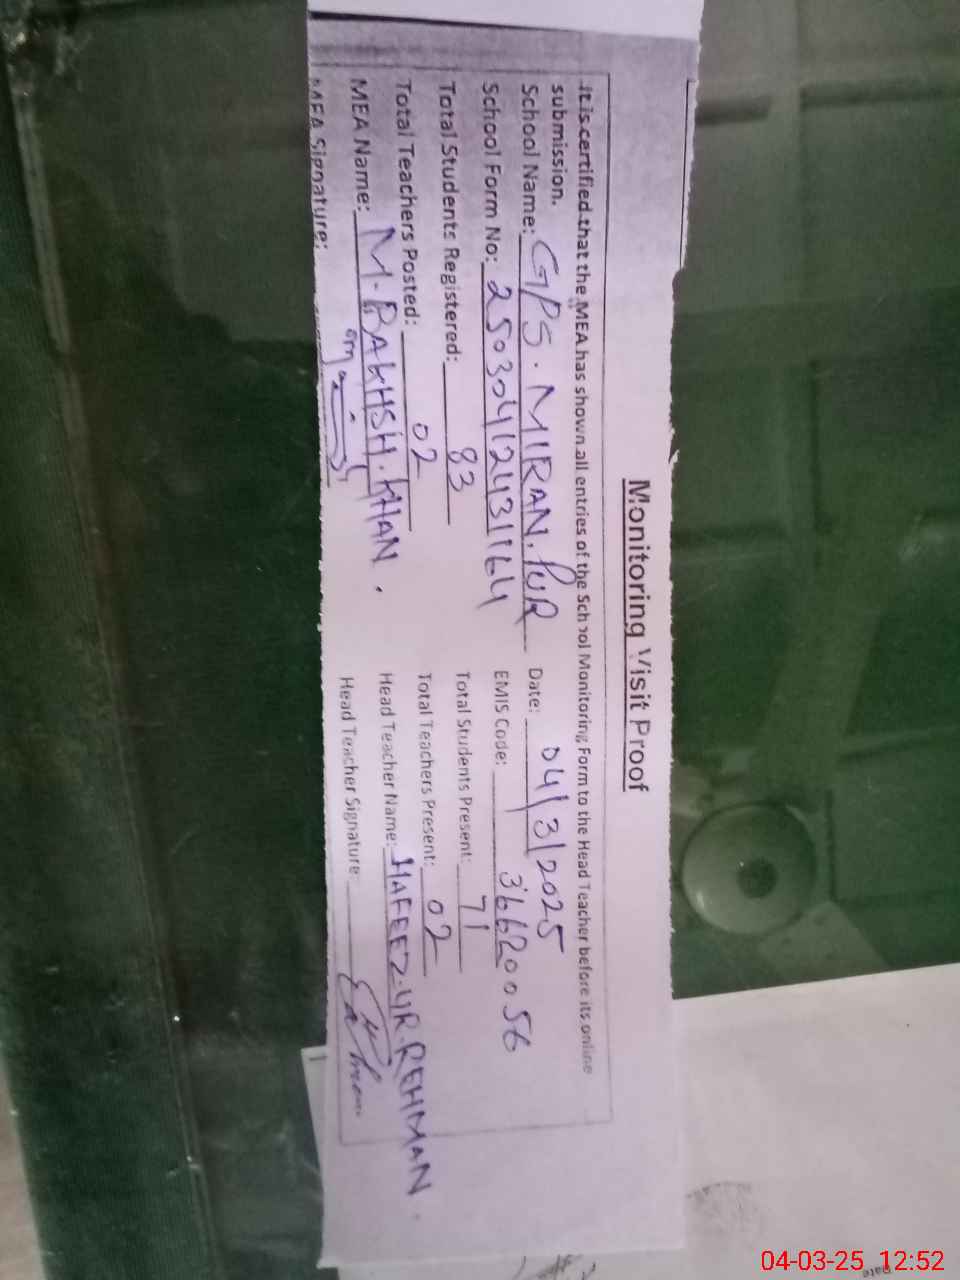 Monitoring Visit Proof
It is certified that the MEA has shown all entries of the School Monitoring Form to the Head Teacher before its online
submission.
School Name: GPS. MIRAN. PUR Date: 04/3/2025
School Form No: 25030412431164 EMIS Code: 36620056
Total Students Registered: 83 Total Students Present: 71
Total Teachers Posted: 02 Total Teachers Present: 02
MEA Name: M. BAKHSH. KHAN. Head Teacher Name: HAFEEZ-UR-REHMAN.
MEA Signature: Head Teacher Signature:
Date
04-03-25 12:52